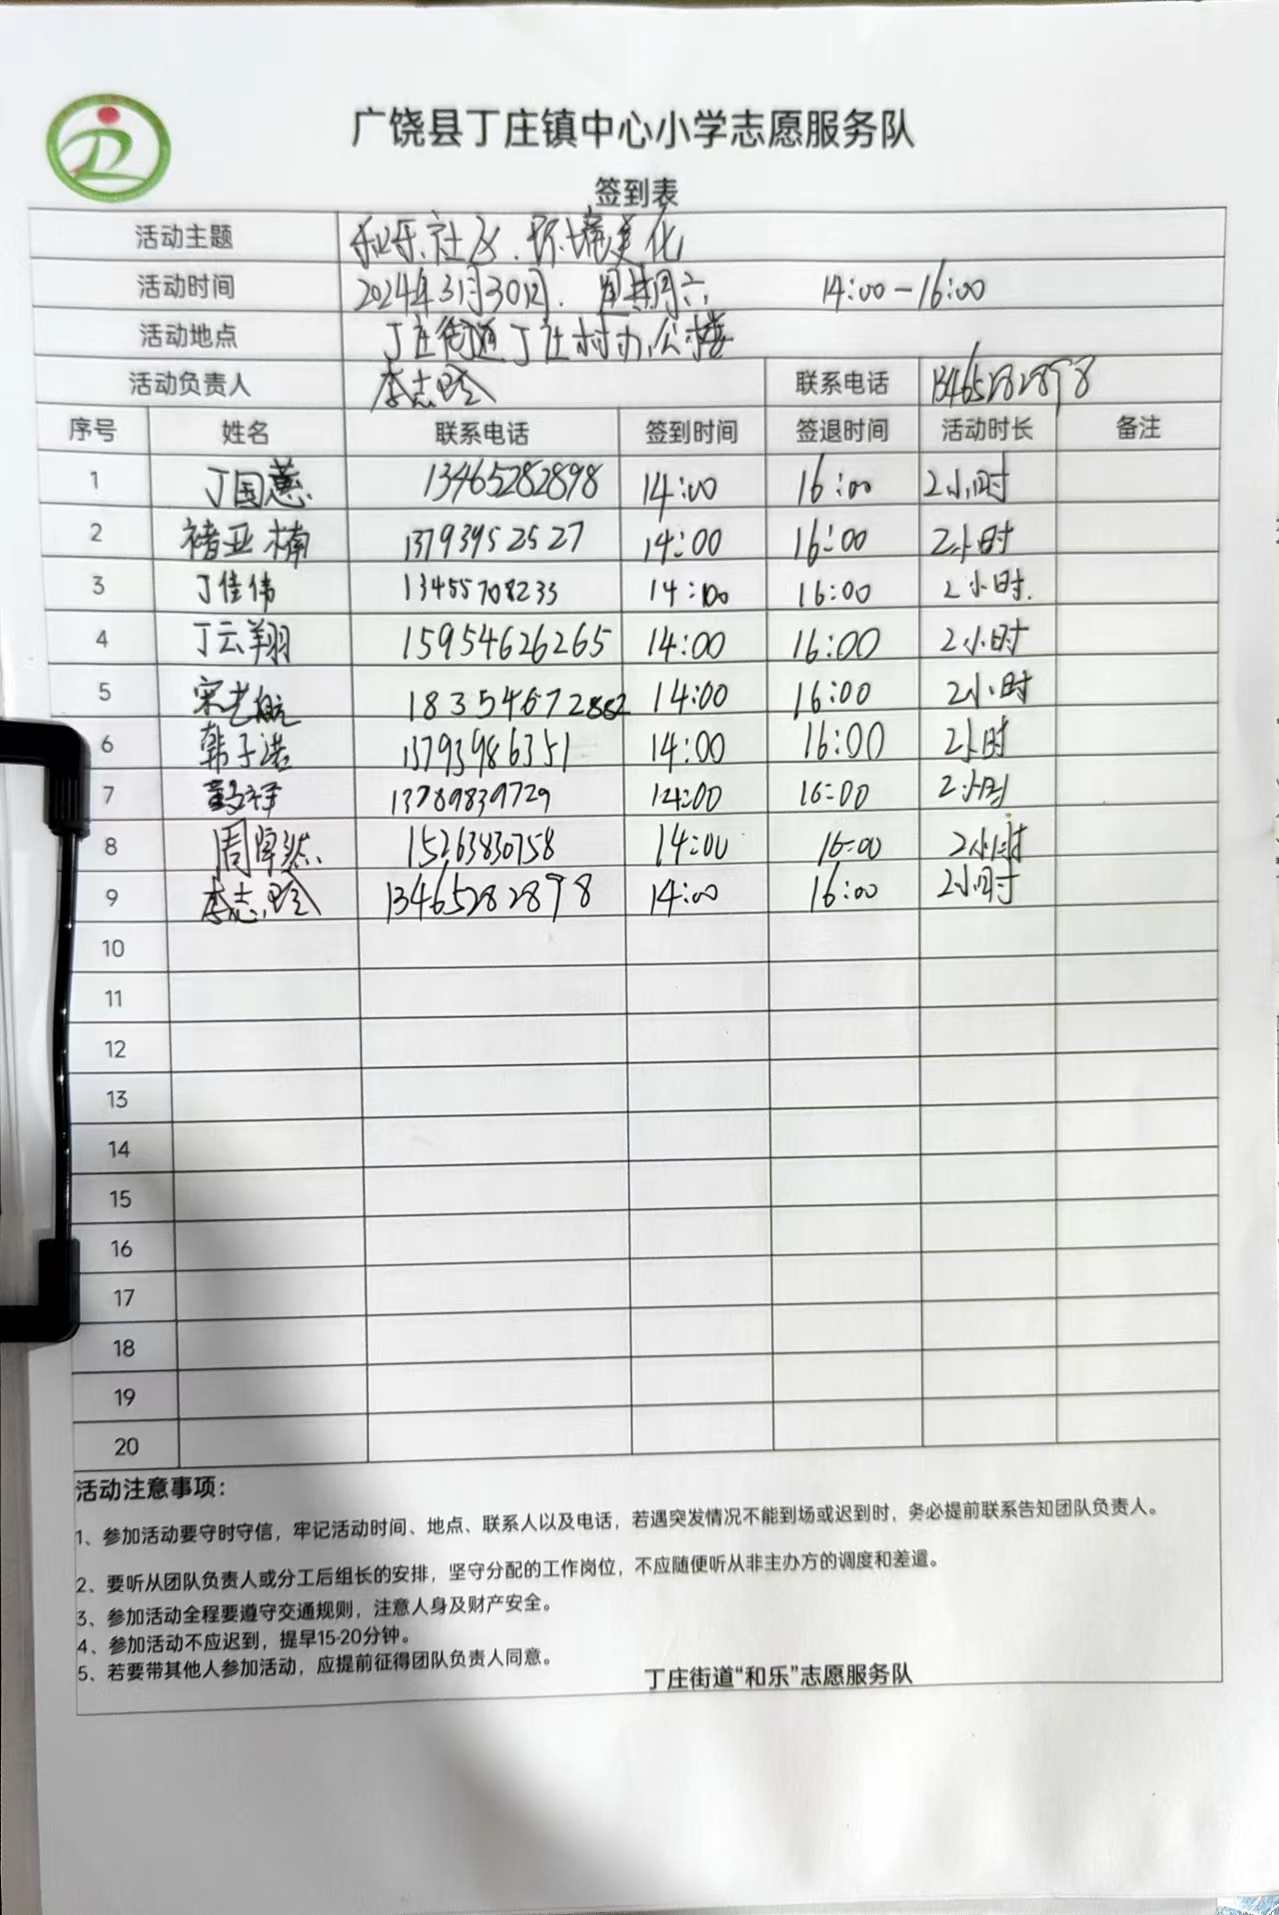 广饶县丁庄镇中心小学志愿服务队
签到表
活动主题 和乐社区.环境美化
活动时间 2024年3月30日. 周六 14:00-16:00
活动地点 丁庄街道丁庄村办公楼
活动负责人 李志玲 联系电话 13465282898
序号 姓名 联系电话 签到时间 签退时间 活动时长 备注
1 丁国蕙 13465282898 14:00 16:00 2小时
2 褚亚楠 13793952527 14:00 16:00 2小时
3 丁佳伟 13455708233 14:00 16:00 2小时.
4 丁云翔 15954626265 14:00 16:00 2小时
5 宋艺航 18354672882 14:00 16:00 2小时
6 韩子浩 13793986351 14:00 16:00 2小时
7 13789839729 14:00 16:00 2小时
8 周焯然 15263830758 14:00 16:00 2小时
9 李志玲 13465282898 14:00 16:00 2小时
10
11
12
13
14
15
16
17
18
19
20
活动注意事项：
1、参加活动要守时守信，牢记活动时间、地点、联系人以及电话，若遇突发情况不能到场或迟到时，务必提前联系告知团队负责人。
2、要听从团队负责人或分工后组长的安排，坚守分配的工作岗位，不应随便听从非主办方的调度和差遣。
3、参加活动全程要遵守交通规则，注意人身及财产安全。
4、参加活动不应迟到，提早15-20分钟。
5、若要带其他人参加活动，应提前征得团队负责人同意。
丁庄街道“和乐”志愿服务队